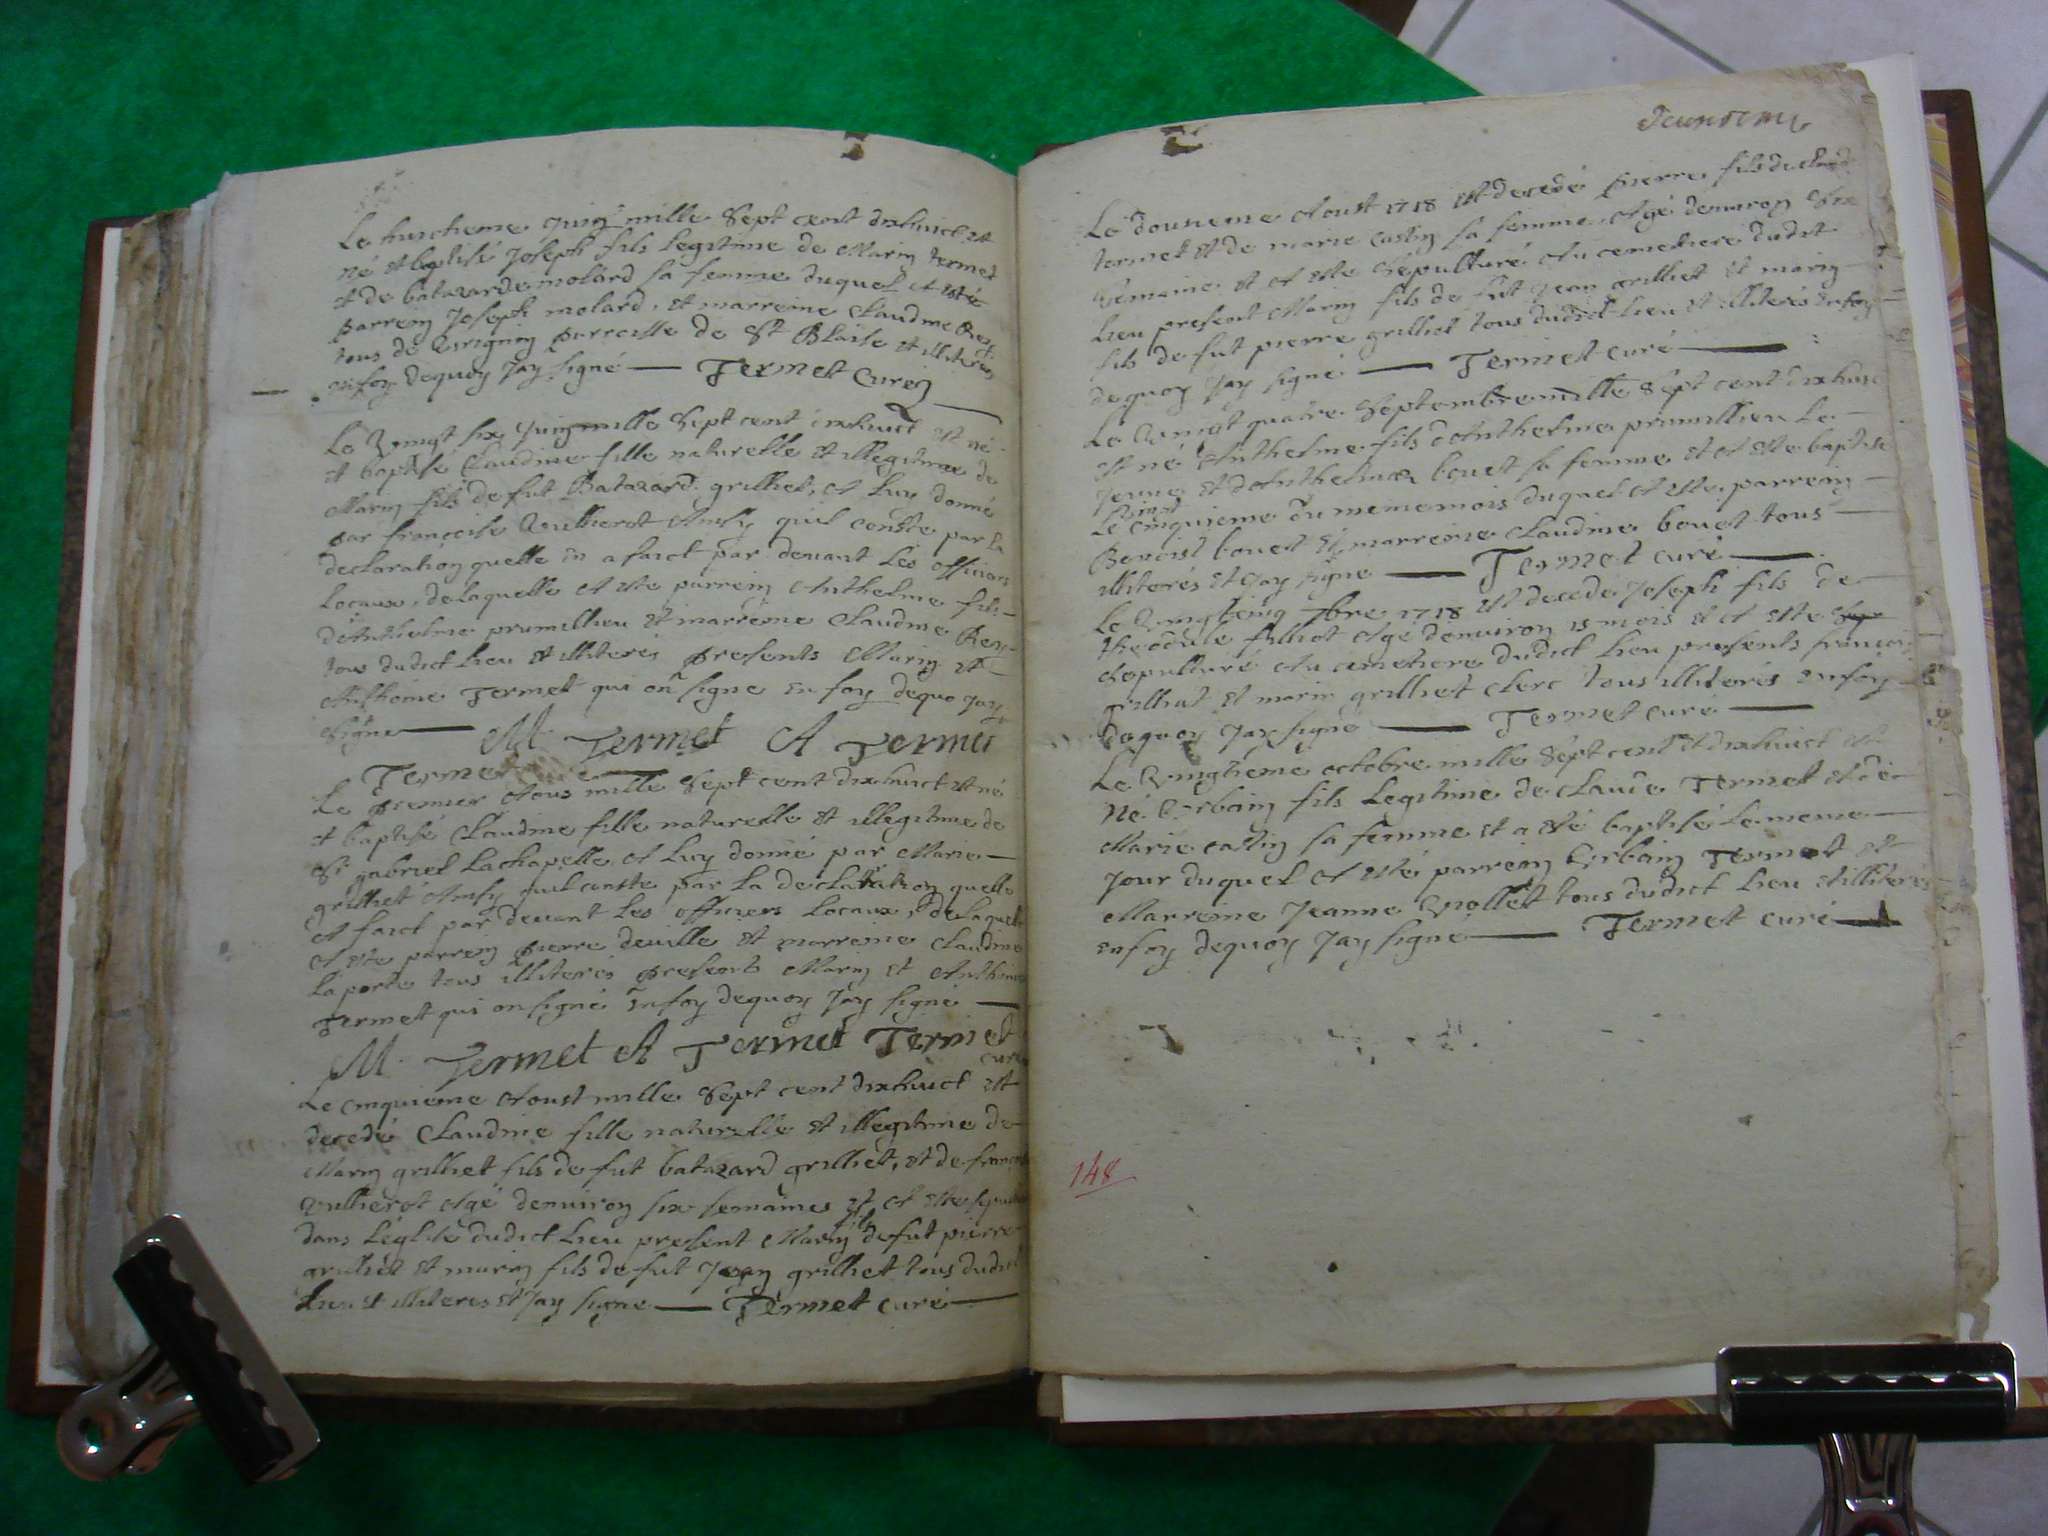 Le huictieme Juin mille Sept cent dixhuict est
né et baptisé Joseph fils legitime de Marin termet
et de batazarde molard sa femme duquel a esté
parrein Joseph molard, et marreine Claudine Rey
tous de Virignin parroisse de St Blaise et illiteres
enfoy dequoy Jay signé — Termet Curé
Le Vingt six Juin mille Sept cent dixhuict est né
et baptisé Claudine fille naturelle et illegitime de
Marin fils de fut Batazard grilliet, a Luy donné
par françoise Vullierot Ainsy quil conste par la
declaration quelle en a faict par devant les officiers
Locaux, de laquelle a este parrein Anthelme fils
dAnthelme prumillieu et marreine Claudine Rey
tous dudict Lieu et illiteres presents Marin et
Anthoine Termet qui on signe en foy dequo Jay
Signe — M Termet A Termet
Termet
Le premier Aous mille Sept cent dixhuict est né
et baptisé Claudine fille naturelle et illegitime de
Sr gabriel Lachapelle A Luy donné par Marie
grilliet Ainsy quil conste par la declaration quelle
A faict par devant Les officiers Locaux, de laquelle
A este parrein pierre deville et marreine Claudine
laporte tous illiterés presents Marin et Anthoine
Termet qui on signé enfoy dequoy Jay signé —
M. Termet A Termet Termet
curé
Le cinquieme Aoust mille Sept cent dixhuict est
decedé Claudine fille naturelle et illegitime de
Marin grilliet fils de fut batazard grilliet, et de francoise
Vullierot Agé denviron six semaines et A este
dans Léglise dudict Lieu present Marin fils de fut pierre
grilliet et marin fils de fut Jean grilliet tous dudict
Lieu et illiteres et Jay signe — Termet curé —
Le dousieme Aoust 1718 est decedé pierre fils du claude
termet et de marie castin sa femme Agé denviron six
Semaine et A este Sepulturé Au cemetiere dudit
Lieu present Marin fils de fut Jean grilliet et marin
fils de fut pierre grilliet tous dudict Lieu et illiterés enfoy
dequoy Jay signé — Termet curé —
Le Vingt quatre Septembre mille Sept cent dixhuic
est né Anthelme fils dAnthelme prumillieu Le
Jeune et dAnthelma bovet sa femme et A este baptisé
Le vingt cinquieme du meme mois duquel A este parrein
Benoist bovet et marreine Claudine bovet tous
illiterés et Jay signe — Termet curé —
Le Vingtcinq 7bre 1718 est decedé Joseph fils de
theodule filliot Agé denviron 15 mois et A este
Sepulturé Au cimetiere dudict Lieu presents françois
grilliat et marin grilliet clerc tous illiterés enfoy
dequoy Jay signe — Termet curé —
Le Vingtieme octobre mille Sept cent et dixhuict est
Né Vrbain fils Legitime de claude Termet et de
Marie castin sa femme et a esté baptisé Le meme
Jour duquel A esté parrein Vrbain Termet et
Marreine Jeanne Viollet tous dudict Lieu et illiteres
enfoy dequoy Jay signe — Termet curé —
148